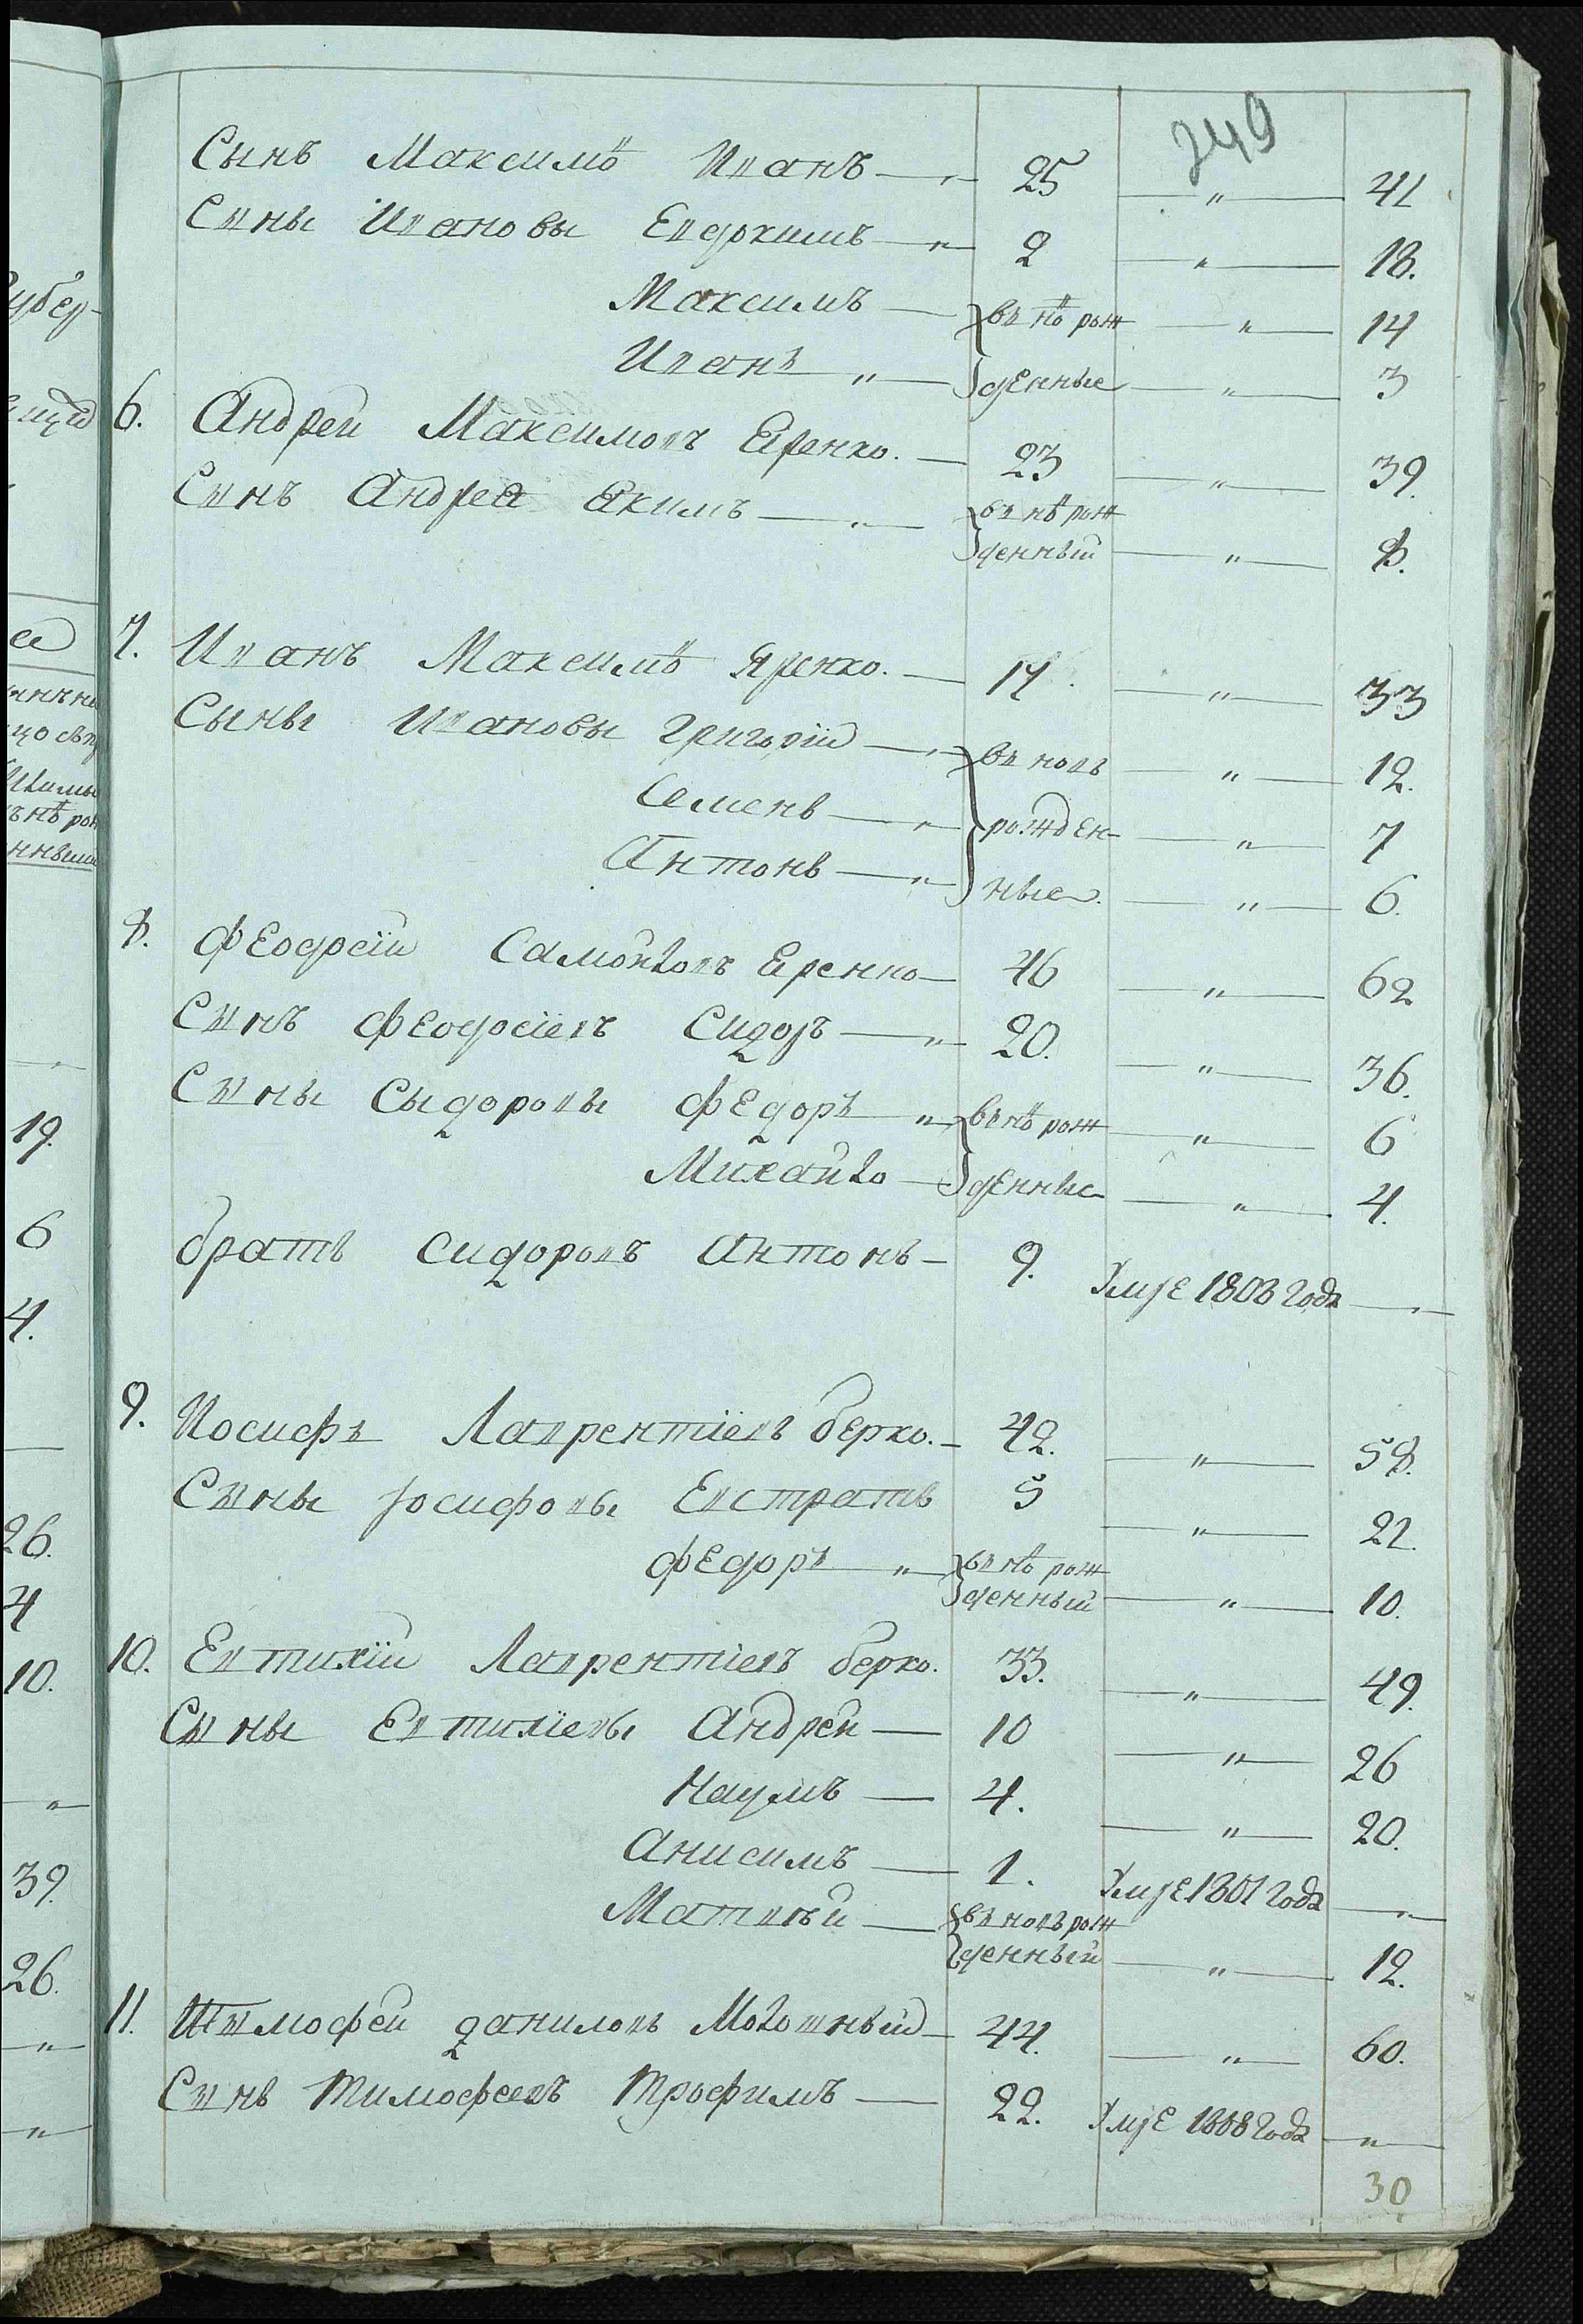 249
Сынъ Максимо̋ Иванъ — „ — 25 — „ — 41
Сыны Ивановы Евдокимъ — „ — 2 — „ — 18.
Максимъ — въ но̋ рож — „ — 14
Иванъ „ — денные — „ — 3
6. Андрей Максимовъ Яренко. — 23 — „ — 39.
Сынъ Андрея Якимъ — „ — въ нѣ рож
денный — „ — 8.
7. Иванъ Максимо̋ Яренко. — 17. — „ — 33
Сыны Ивановы Григорій — „ — въ новъ — „ — 12.
Семенъ — „ — рожден- — „ — 7
Антонъ — „ — ные. — „ — 6.
8. Феодосій Самойловъ Яренко — 46 — „ — 62
Сынъ Феодосіевъ Сидоръ — „ — 20. — „ — 36.
Сыны Сыдоровы Федоръ — „ — въ нѣ рож — „ — 6
Михайло — денные — „ — 4.
братъ Сидоровъ Антонъ — 9. Умре 1803 года — „ —
9. Иосифъ Лаврентіевъ берко. — 42. — „ — 58.
Сыны Іосифовы Евстратъ 5 — „ — 21.
Федоръ „ — въ нѣ рож
денный — „ — 10.
10. Евтихій Лаврентіевъ берко. 33. — „ — 49.
Сыны Евтихіевы Андрей — 10 — „ — 26
Наумъ — 4. — „ — 20.
Анисимъ — 1. Умре 1801 года — „ —
Матвѣй — въ новъ рож
денный — „ — 12.
11. Тимофей Даниловъ — 44. — „ — 60.
Сынъ Тимофеевъ Трофимъ — 22. Умре 1808 года — „ —
30
19.
6
4.
26.
4
10.
39.
26.